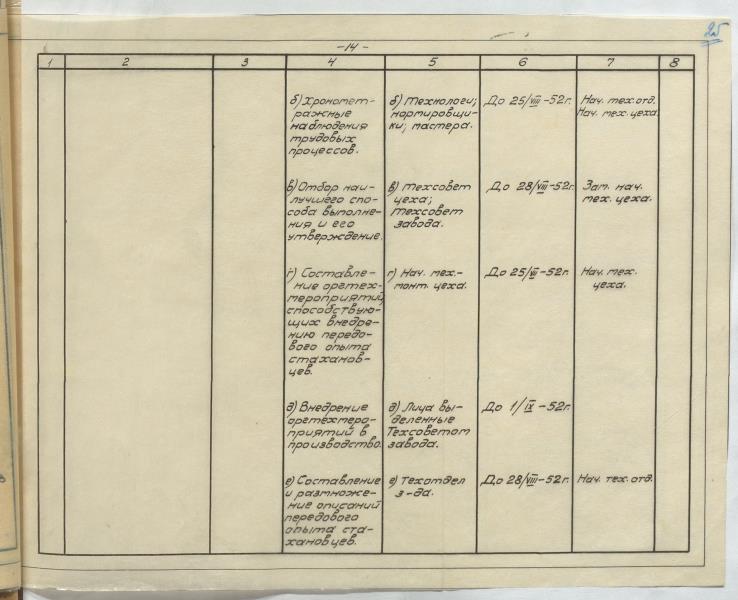 25
-14-
1 2 3 4 5 6 7 8
б) Хрономет-
ражные
наблюдения
трудовых
процессов.
б) Технологи;
нормировщи-
ки; мастера.
До 25/VIII-52г.
Нач. тех. отд.
Нач. мех. цеха.
в) Отбор наи-
лучшего спо-
соба выполне-
ния и его
утверждение.
в) Техсовет
цеха;
Техсовет
завода.
До 28/VIII-52г.
Зам. нач.
мех. цеха.
г) Составле-
ние оргтех-
мероприятий,
способствую-
щих внедре-
нию передо-
вого опыта
стаханов-
цев.
г) Нач. мех.-
монт. цеха.
Нач. мех.
цеха.
д) Внедрение
оргтехмеро-
приятий в
производство.
д) Лица вы-
деленные
Техсоветом
завода.
До 1/IX-52г.
е) Составление
и размноже-
ние описаний
передового
опыта ста-
хановцев.
е) Техотдел
з-да.
До 28/VIII-52г.
Нач. тех. отд.